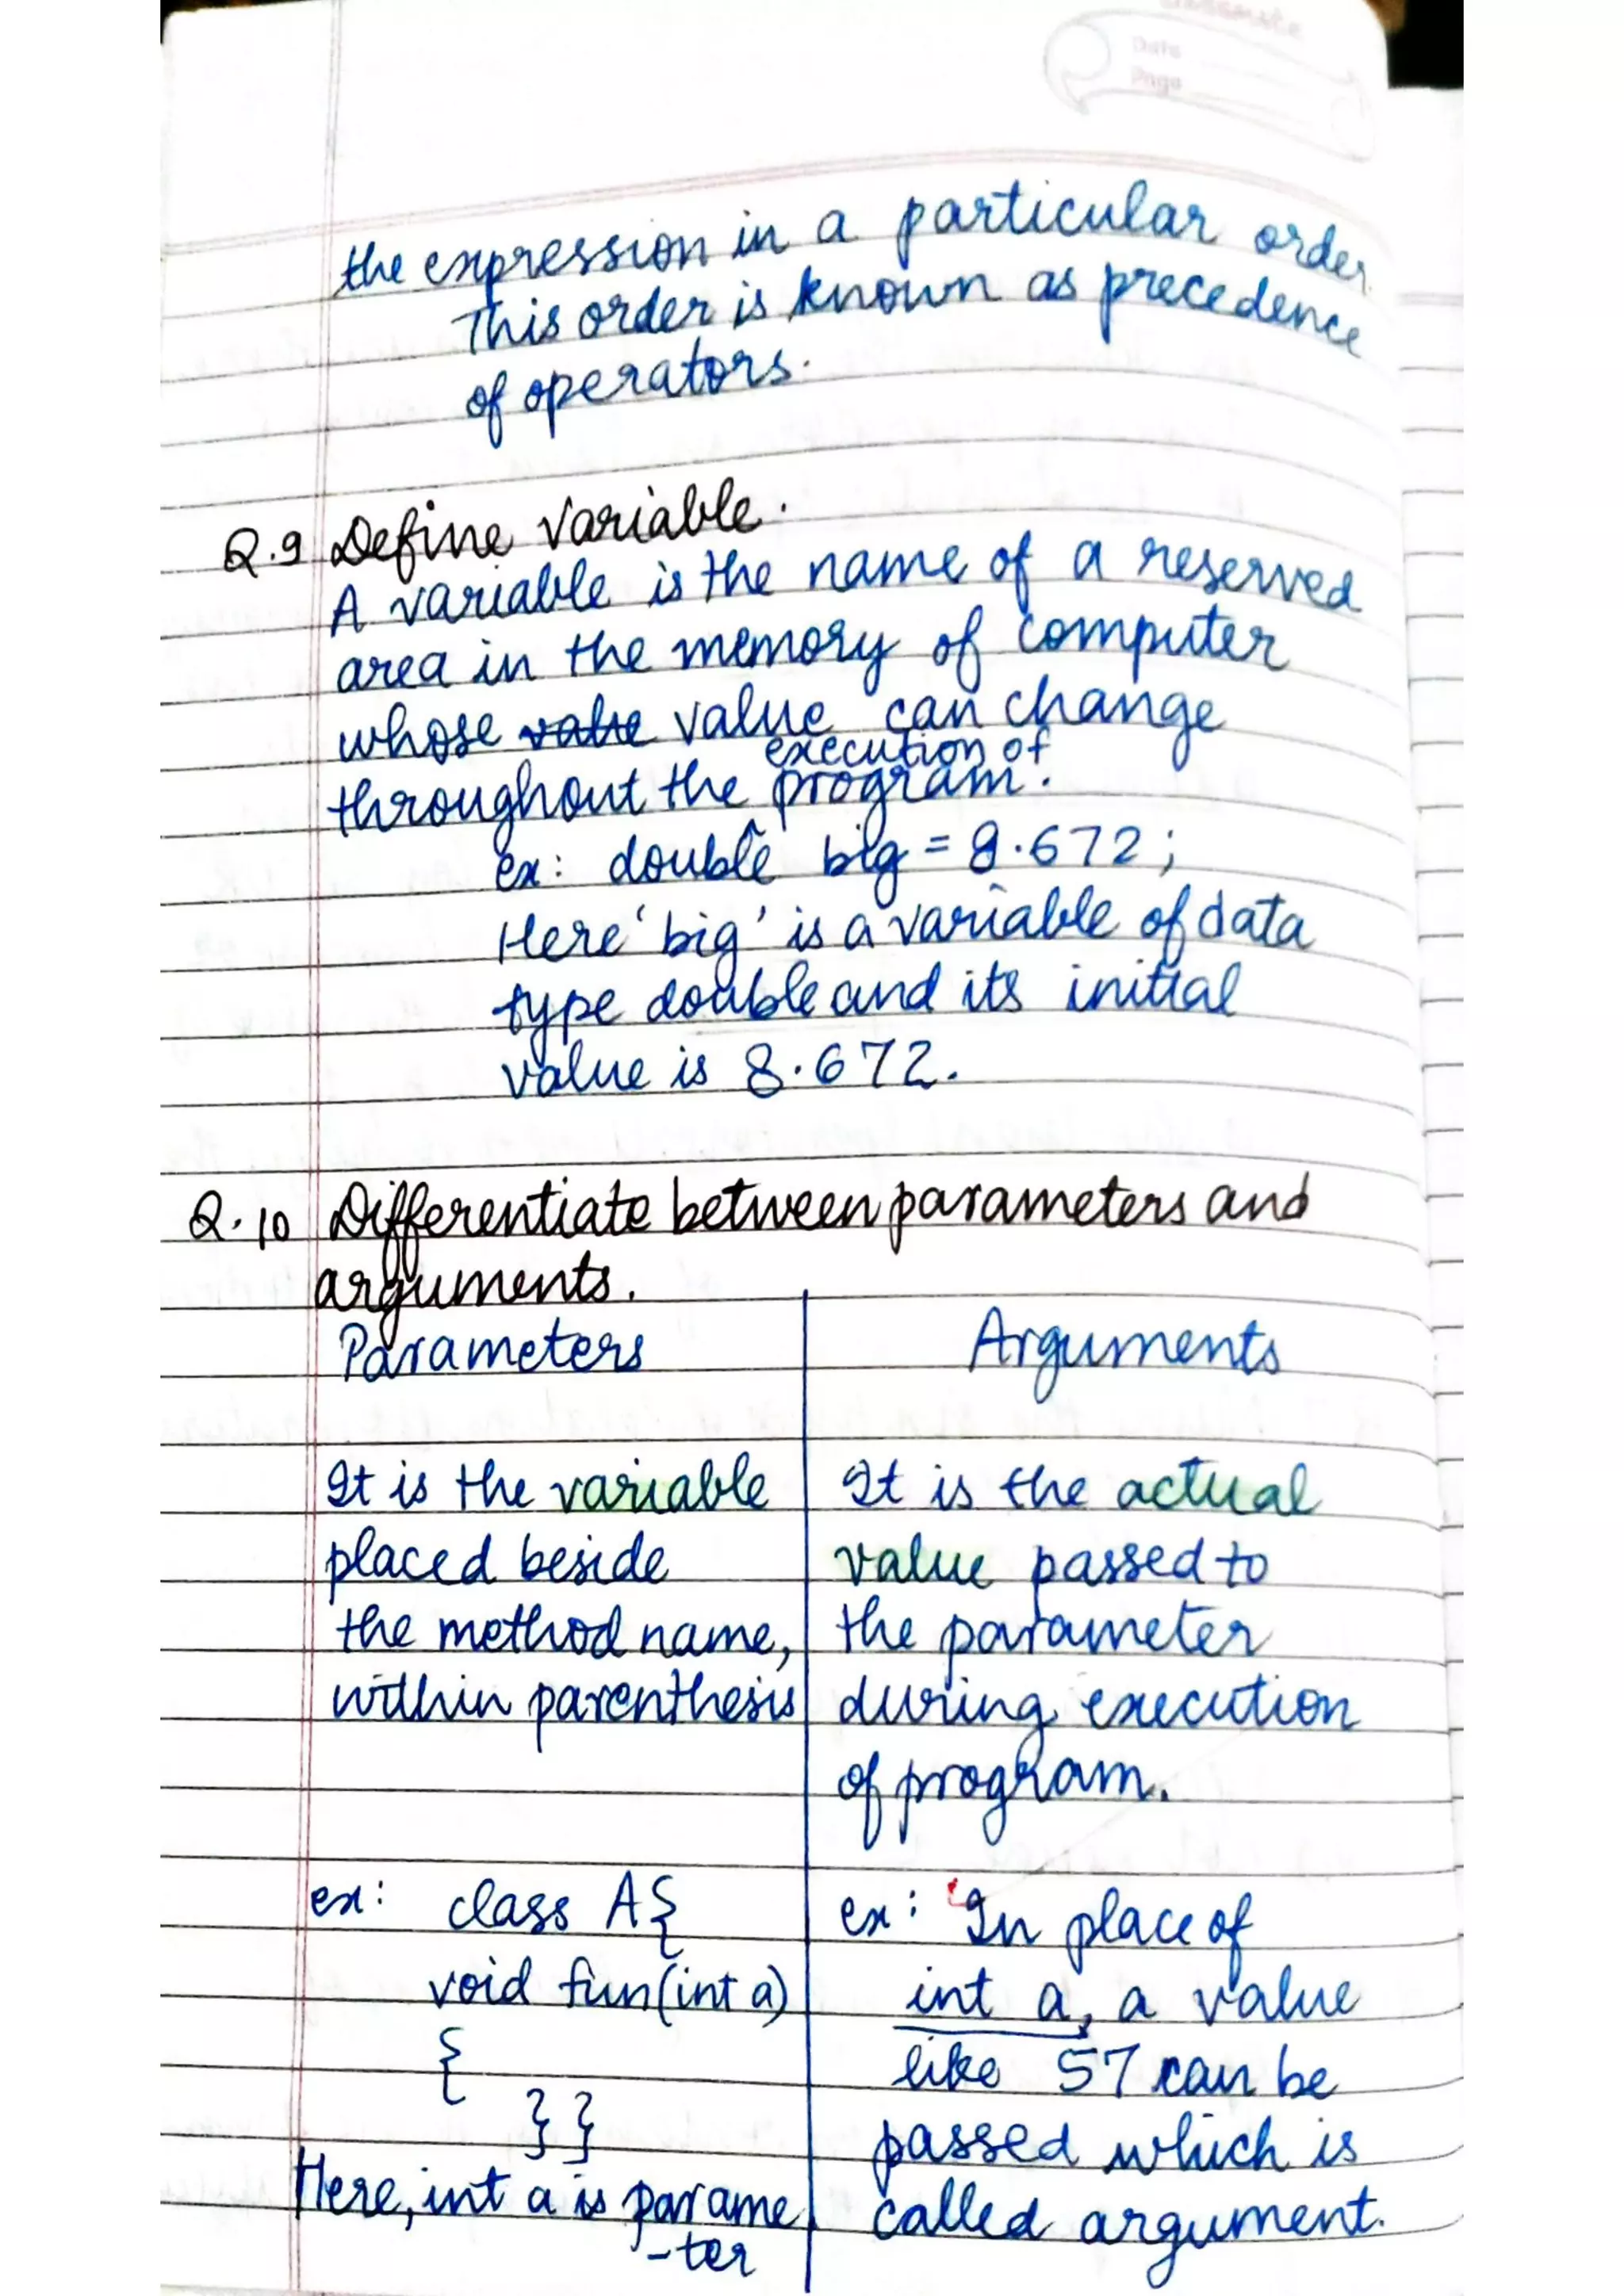 classmate
Date
Page
the expression in a particular order.
This order is known as precedence
of operators.
Q.9 Define Variable.
A variable is the name of a reserved
area in the memory of computer
whose value value can change
execution of
throughout the program.
ex: double big = 8.672;
Here 'big' is a variable of data
type double and its initial
value is 8.672.
Q.10 Differentiate between parameters and
arguments.
Parameters
It is the variable
placed beside
the method name,
within parenthesis
ex: class A{
void fun(int a)
{
}}
Here, int a is parame
-ter
Arguments
It is the actual
value passed to
the parameter
during execution
of program.
ex: In place of
int a, a value
like 57 can be
passed which is
called argument.